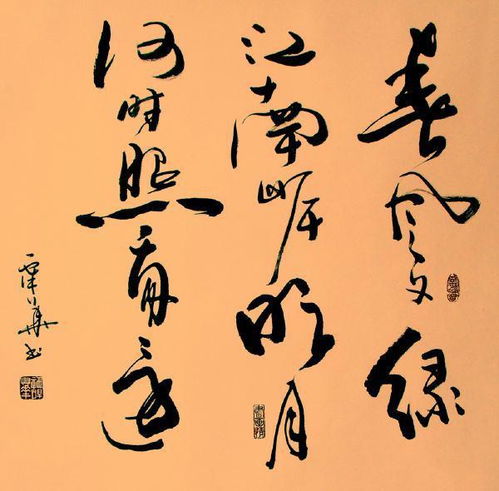 春风又绿
江南岸明月
何时照我还
華书